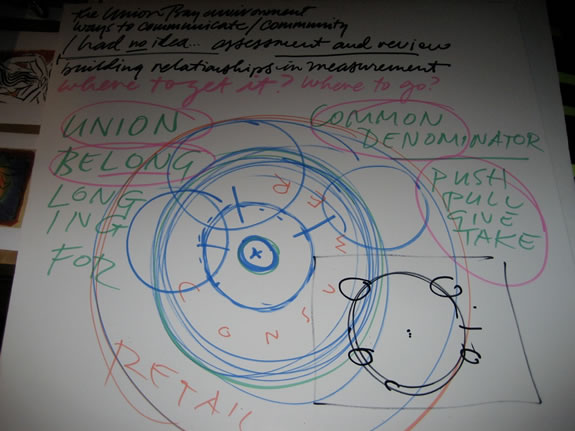 the Union Bay environment
ways to communicate/community
I had no idea... assessment and review
building relationships in measurement
where to get it? Where to go?
UNION
BELONG
LONG
ING
FOR
COMMON
DENOMINATOR
PUSH
PULL
GIVE
TAKE
CONSUMER
RETAIL